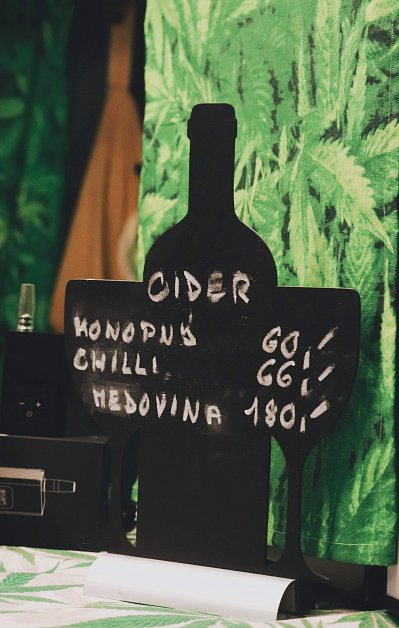 CIDER
KONOPNÝ 60,-
CHILLI 66,-
MEDOVINA 180,-